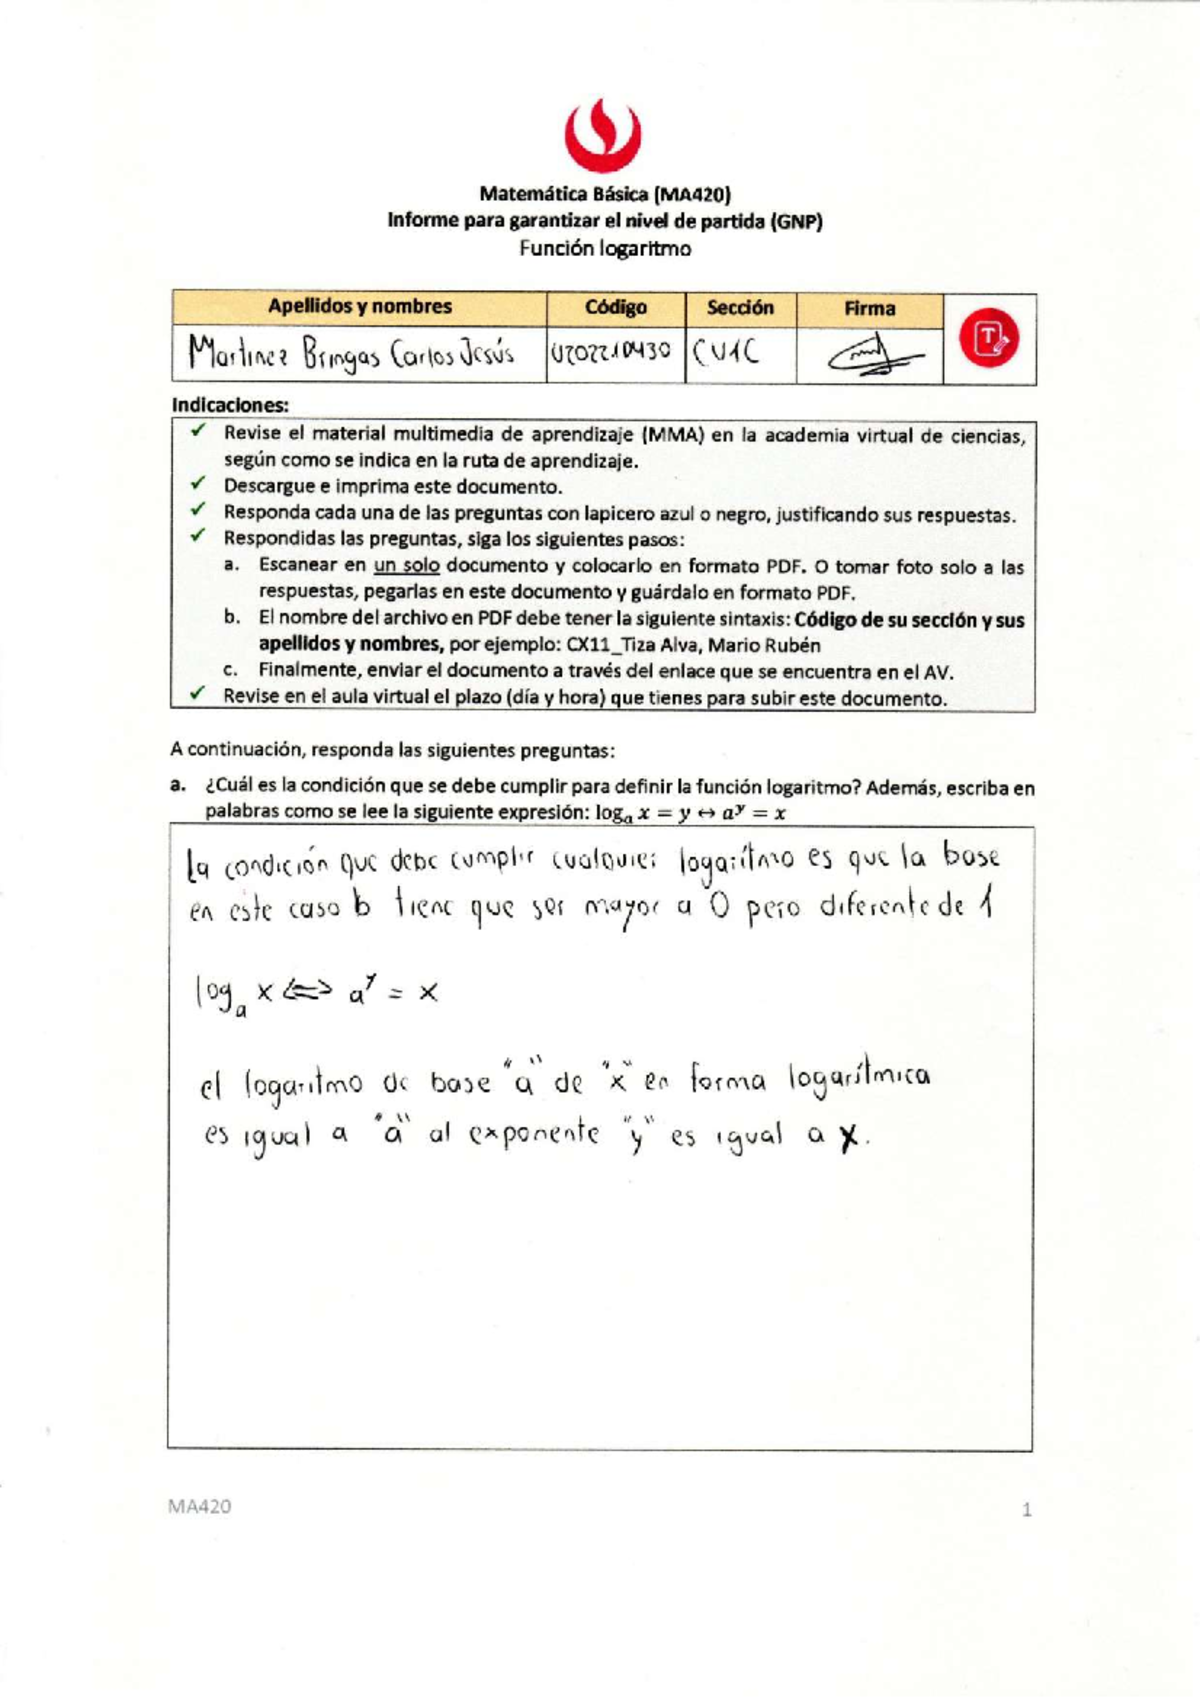 Matemática Básica (MA420)
Informe para garantizar el nivel de partida (GNP)
Función logaritmo
Apellidos y nombres Código Sección Firma
Martinez Bringas Carlos Jesús U202210430 CU1C
T
Indicaciones:
✓ Revise el material multimedia de aprendizaje (MMA) en la academia virtual de ciencias,
según como se indica en la ruta de aprendizaje.
✓ Descargue e imprima este documento.
✓ Responda cada una de las preguntas con lapicero azul o negro, justificando sus respuestas.
✓ Respondidas las preguntas, siga los siguientes pasos:
a. Escanear en un solo documento y colocarlo en formato PDF. O tomar foto solo a las
respuestas, pegarlas en este documento y guárdalo en formato PDF.
b. El nombre del archivo en PDF debe tener la siguiente sintaxis: Código de su sección y sus
apellidos y nombres, por ejemplo: CX11_Tiza Alva, Mario Rubén
c. Finalmente, enviar el documento a través del enlace que se encuentra en el AV.
✓ Revise en el aula virtual el plazo (día y hora) que tienes para subir este documento.
A continuación, responda las siguientes preguntas:
a. ¿Cuál es la condición que se debe cumplir para definir la función logaritmo? Además, escriba en
palabras como se lee la siguiente expresión: logₐ x = y ↔ aʸ = x
La condición que debe cumplir cualquier logarítmo es que la base
en este caso b tiene que ser mayor a 0 pero diferente de 1
logₐ x ⟺ aʸ = x
el logaritmo de base "a" de "x" en forma logarítmica
es igual a "a" al exponente "y" es igual a x.
MA420 1